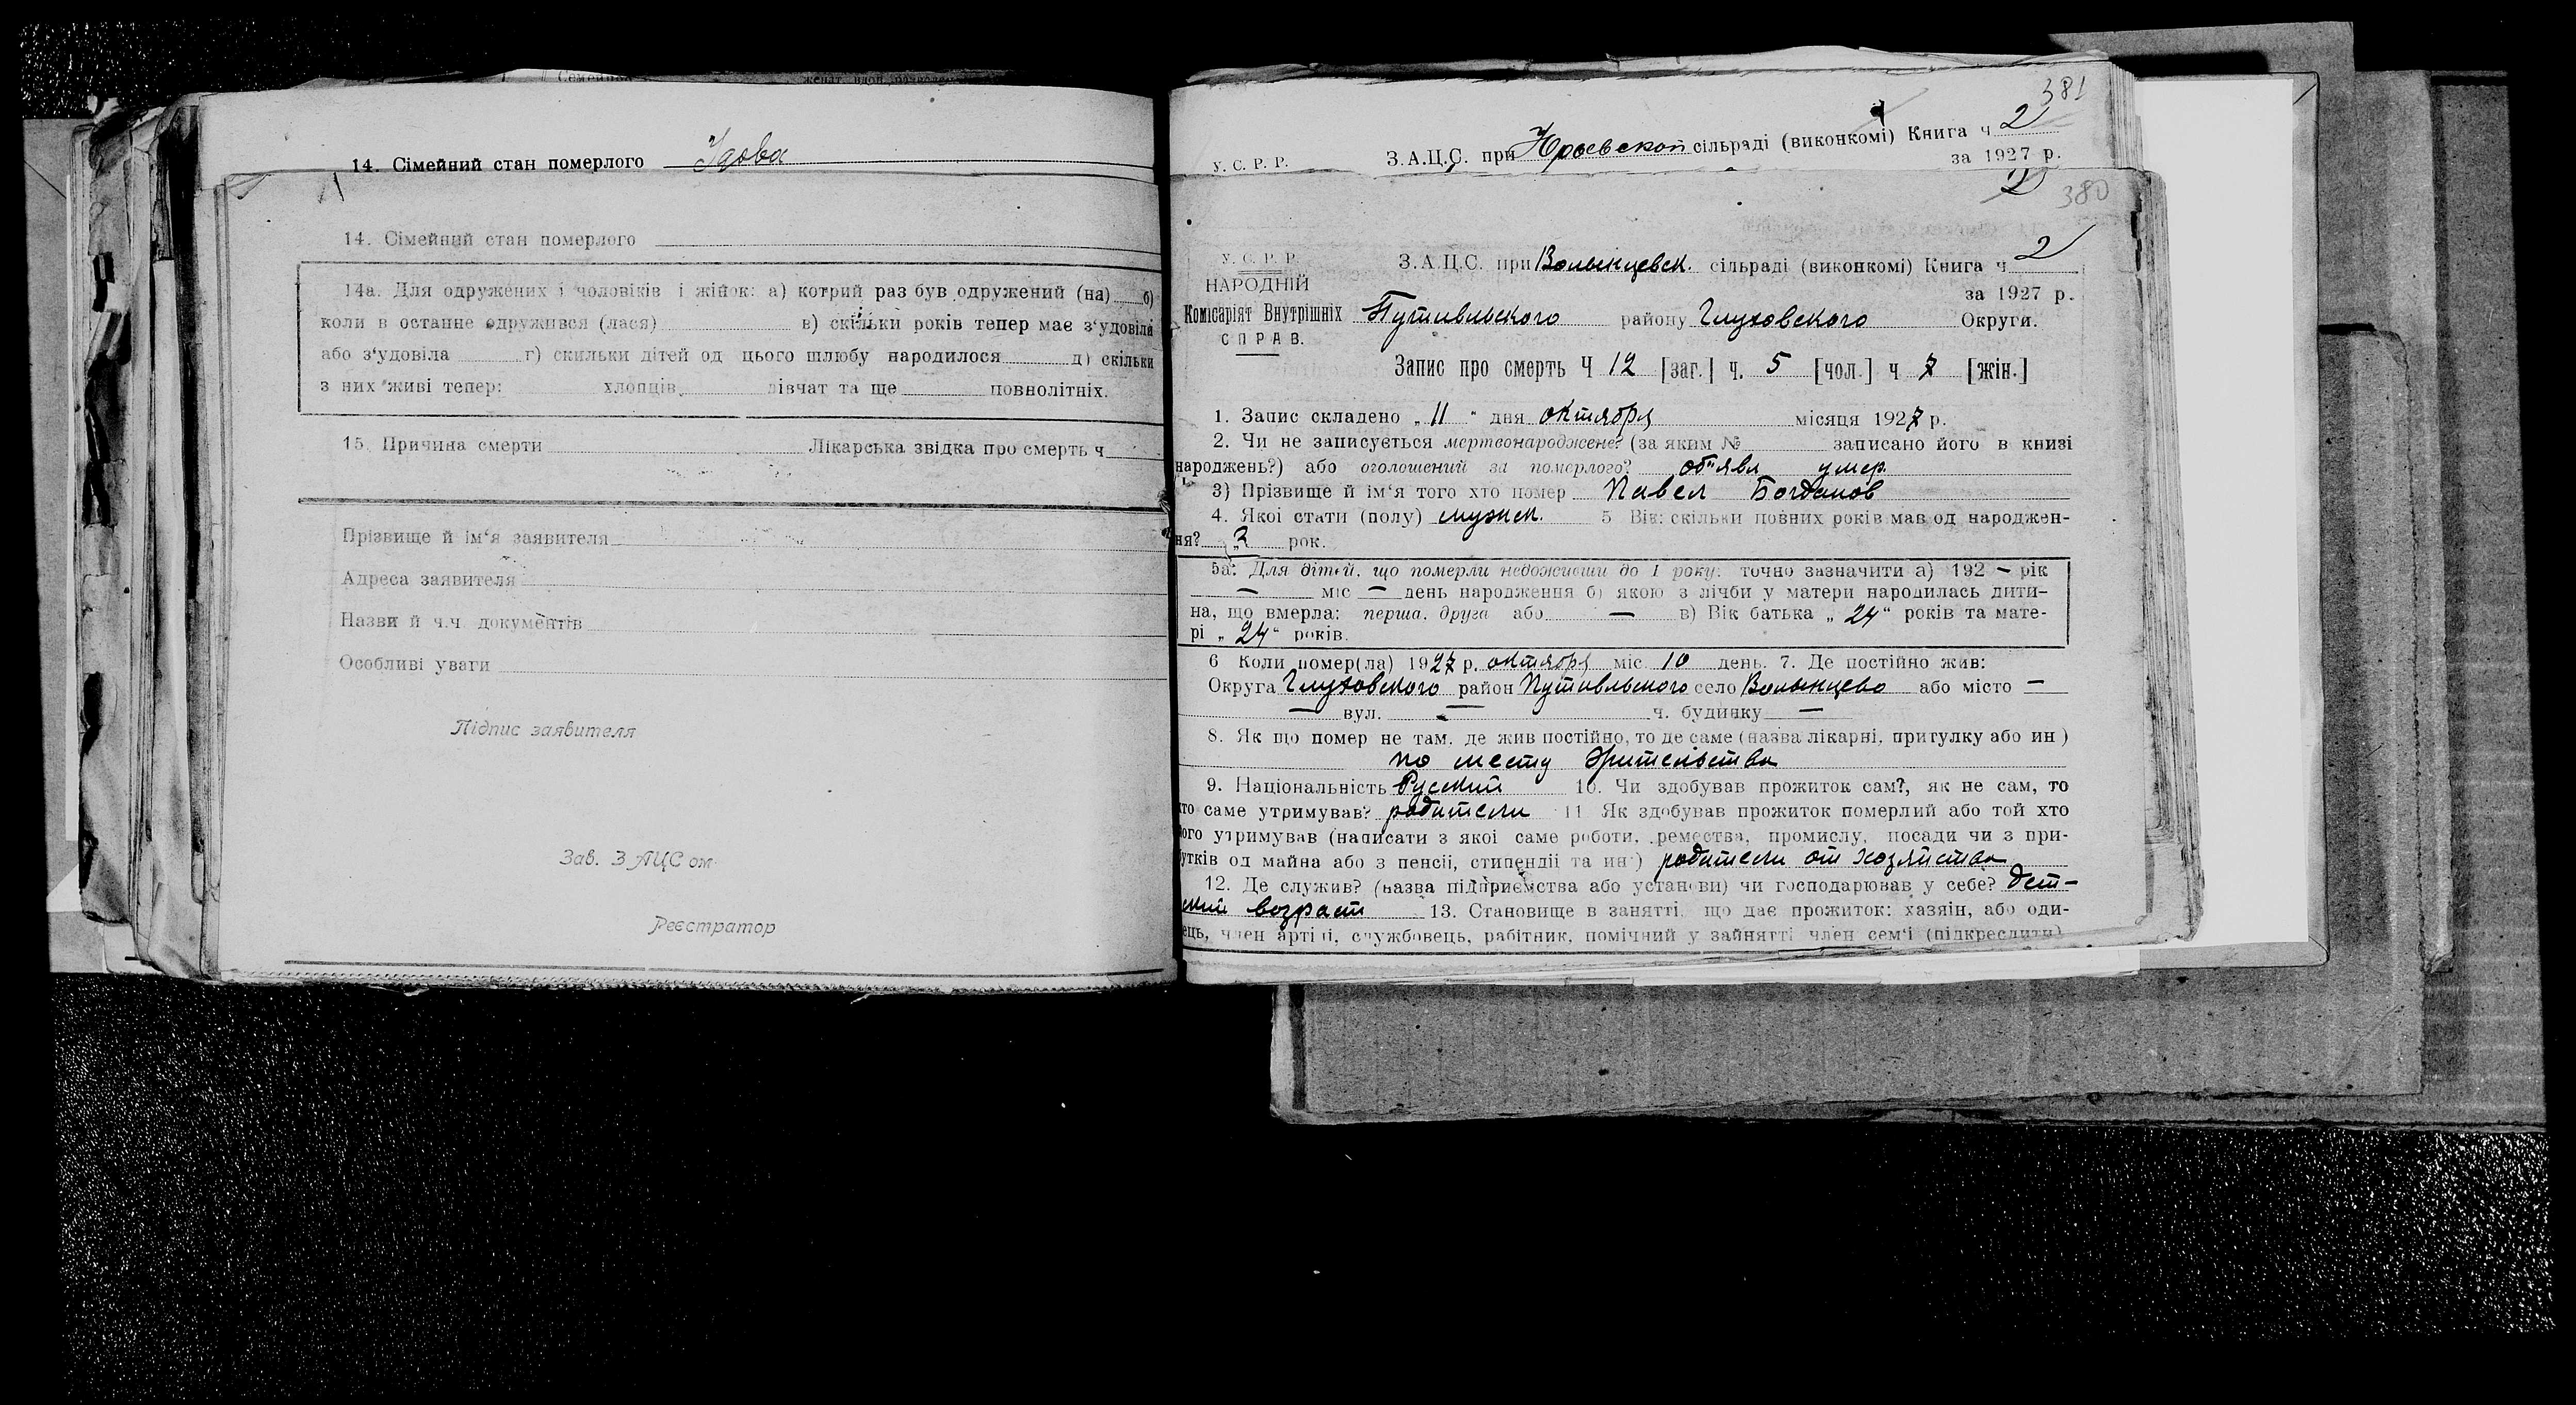 14. Сімейний стан померлого Удова
14. Сімейний стан померлого
14а. Для одружених і чоловіків і жінок: а) котрий раз був одружений (на) б)
коли в останне одружився (лася) в) скільки років тепер має з'удовіла
або з'удовіла г) скильки дітей од цього шлюбу народилося д) скільки
з них живі тепер: хлопців дівчат та ще повнолітніх.
15. Причина смерти Лікарська звідка про смерть ч
Прізвище й ім'я заявителя
Адреса заявителя
Назви й ч.ч. документів
Особливі уваги
Підпис заявителя
Зав. ЗАЦСом
Реєстратор
381
У. С. Р. Р. З.А.Ц.С. при Юрьевской сільраді (виконкомі) Книга ч 2
за 1927 р.
2
380
У. С. Р. Р. З.А.Ц.С. при Волынцевск. сільраді (виконкомі) Книга ч 2
НАРОДНІЙ за 1927 р.
Комісаріят Внутрішніх Путивльского району Глуховского Округи.
СПРАВ.
Запис про смерть Ч 12 [заг.] ч. 5 [чол.] ч 7 [жін.]
1. Запис складено „ 11 " дня октября місяця 1927 р.
2. Чи не записується мертвонароджене? (за яким № записано його в книзі
народжень?) або оголошений за померлого? об"явл умер.
3) Прізвище й ім'я того хто помер Павел Богданов
4. Якої стати (полу) мужск. 5 Вік: скільки повних років мав од народжен-
ня? 3 рок.
5а: Для дітей, що померли недоживши до 1 року: точно зазначити а) 192 — рік
— міс — день народження б) якою з лічби у матери народилась дити-
на, що вмерла: перша, друга або — в) Вік батька „ 24 " років та мате-
рі „ 24 " років.
6 Коли помер(ла) 1927 р. октября міс 10 день. 7. Де постійно жив:
Округа Глуховского район Путивльского село Волынцево або місто —
— вул. — ч. будинку —
8. Як що помер не там, де жив постійно, то де саме (назва лікарні, притулку або ин)
по месту жительства
9. Національність Русский 10. Чи здобував прожиток сам?, як не сам, то
хто саме утримував? родители 11 Як здобував прожиток померлий або той хто
його утримував (написати з якої саме роботи, ремества, промислу, посади чи з при-
бутків од майна або з пенсії, стипендії та ин.) родители от хозяйства
12. Де служив? (назва підприємства або установи) чи господарював у себе? дет-
ский возраст 13. Становище в занятті, що дає прожиток: хазяїн, або оди-
нець, член артілі, службовець, рабітник, помічний у зайнятті член сем'ї (підкреслити)